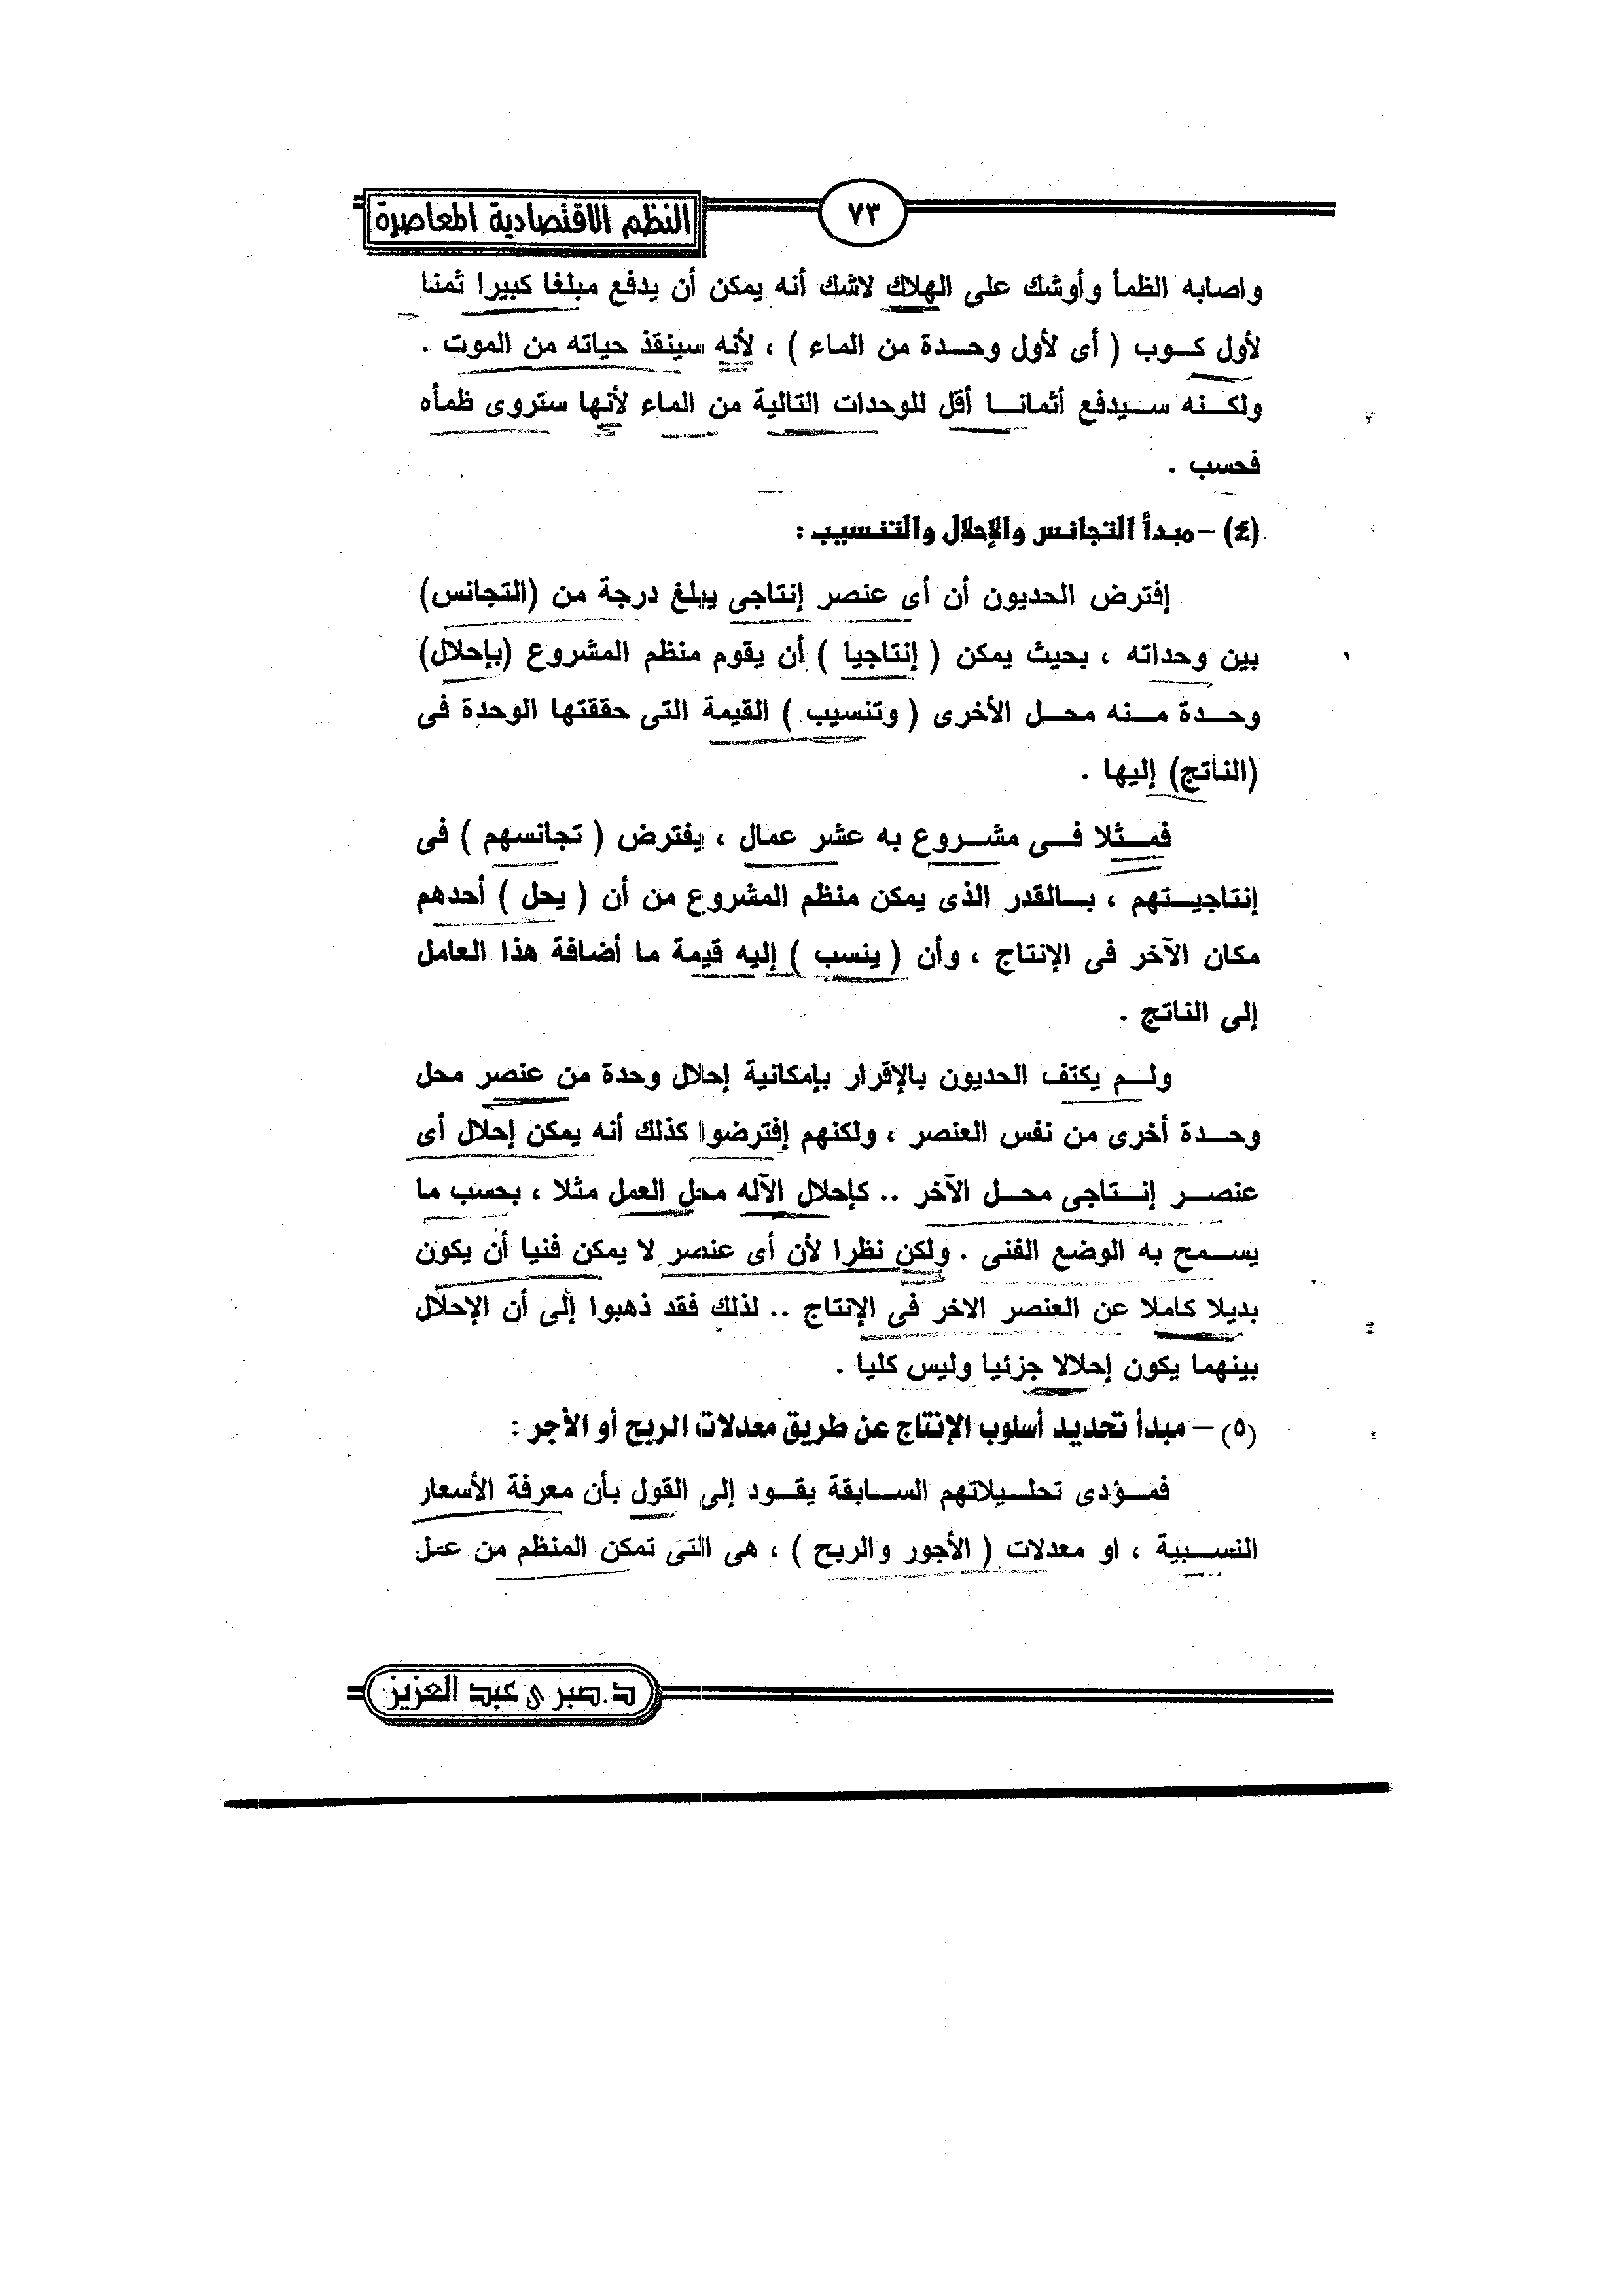 النظم الاقتصادية المعاصرة
٧٣
واصابه الظمأ وأوشك على الهلاك لاشك أنه يمكن أن يدفع مبلغا كبيرا ثمنا
لأول كوب ( أى لأول وحدة من الماء ) ، لأنه سينقذ حياته من الموت .
ولكنه سيدفع أثمانا أقل للوحدات التالية من الماء لأنها ستروى ظمأه
فحسب .
(٤) - مبدأ التجانس والإحلال والتنسيب :
إفترض الحديون أن أى عنصر إنتاجى يبلغ درجة من (التجانس)
بين وحداته ، بحيث يمكن ( إنتاجيا ) أن يقوم منظم المشروع (بإحلال)
وحدة منه محل الأخرى ( وتنسيب ) القيمة التى حققتها الوحدة فى
(الناتج) إليها .
فمثلا فى مشروع به عشر عمال ، يفترض ( تجانسهم ) فى
إنتاجيتهم ، بالقدر الذى يمكن منظم المشروع من أن ( يحل ) أحدهم
مكان الآخر فى الإنتاج ، وأن ( ينسب ) إليه قيمة ما أضافة هذا العامل
إلى الناتج .
ولم يكتف الحديون بالإقرار بإمكانية إحلال وحدة من عنصر محل
وحدة أخرى من نفس العنصر ، ولكنهم إفترضوا كذلك أنه يمكن إحلال أى
عنصر إنتاجى محل الآخر .. كإحلال الآله محل العمل مثلا ، بحسب ما
يسمح به الوضع الفنى . ولكن نظرا لأن أى عنصر لا يمكن فنيا أن يكون
بديلا كاملا عن العنصر الاخر فى الإنتاج .. لذلك فقد ذهبوا إلى أن الإحلال
بينهما يكون إحلالا جزئيا وليس كليا .
(٥) - مبدأ تحديد أسلوب الإنتاج عن طريق معدلات الربح أو الأجر :
فمؤدى تحليلاتهم السابقة يقود إلى القول بأن معرفة الأسعار
النسبية ، او معدلات ( الأجور والربح ) ، هى التى تمكن المنظم من عمل
د.صبرى عبد العزيز